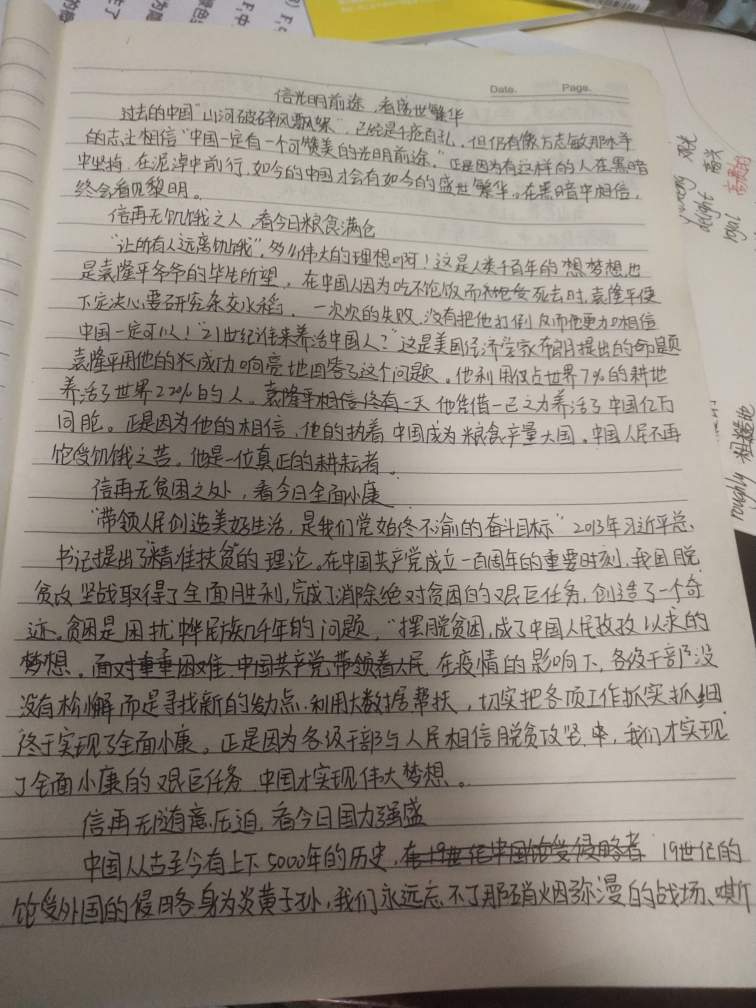 Date.
Page.
信光明前途,看盛世繁华
过去的中国"山河破碎风飘絮",已经是千疮百孔,但仍有像方志敏那样
的志士相信"中国一定有一个可赞美的光明前途。"正是因为有这样的人在黑暗
中坚持,在泥泞中前行,如今的中国才会有如今的盛世繁华。在黑暗中相信,
终会看见黎明。
信再无饥饿之人,看今日粮食满仓
"让所有人远离饥饿",多么伟大的理想啊!这是人类千百年的想梦想,也
是袁隆平爷爷的毕生所望,在中国人因为吃不饱饭而死去时,袁隆平便
下定决心要研究杂交水稻,一次次的失败,没有把他打倒反而他更加相信
中国一定可以!"21世纪谁来养活中国人?"这是美国经济学家布朗提出的命题
袁隆平用他的成功响亮地回答了这个问题。他利用仅占世界7%的耕地
养活了世界22%的人。袁隆平相信终有一天他凭借一己之力养活了中国亿万
同胞。正是因为他的相信,他的执着中国成为粮食产量大国。中国人民不再
饱受饥饿之苦。他是一位真正的耕耘者。
信再无贫困之处,看今日全面小康
"带领人民创造美好生活,是我们党始终不渝的奋斗目标"2013年习近平总
书记提出了"精准扶贫"的理论。在中国共产党成立一百周年的重要时刻,我国脱
贫攻坚战取得了全面胜利,完成了消除绝对贫困的艰巨任务,创造了一个奇
迹。贫困是困扰中华民族几千年的问题,"摆脱贫困,成了中国人民孜孜以求的
梦想。面对重重困难,中国共产党带领着人民在疫情的影响下,各级干部没
没有松懈而是寻找新的发力点.利用大数据帮扶,切实把各项工作抓实抓细
终于实现了全面小康。正是因为各级干部与人民相信脱贫攻坚,我们才实现
了全面小康的艰巨任务 中国才实现伟大梦想。
信再无随意压迫,看今日国力强盛
中国从古至今有上下5000年的历史,在19世纪中国饱受侵略者 19世纪的
饱受外国的侵略身为炎黄子孙,我们永远忘不了那硝火烟弥漫的战场、嘶
roughly 粗糙地